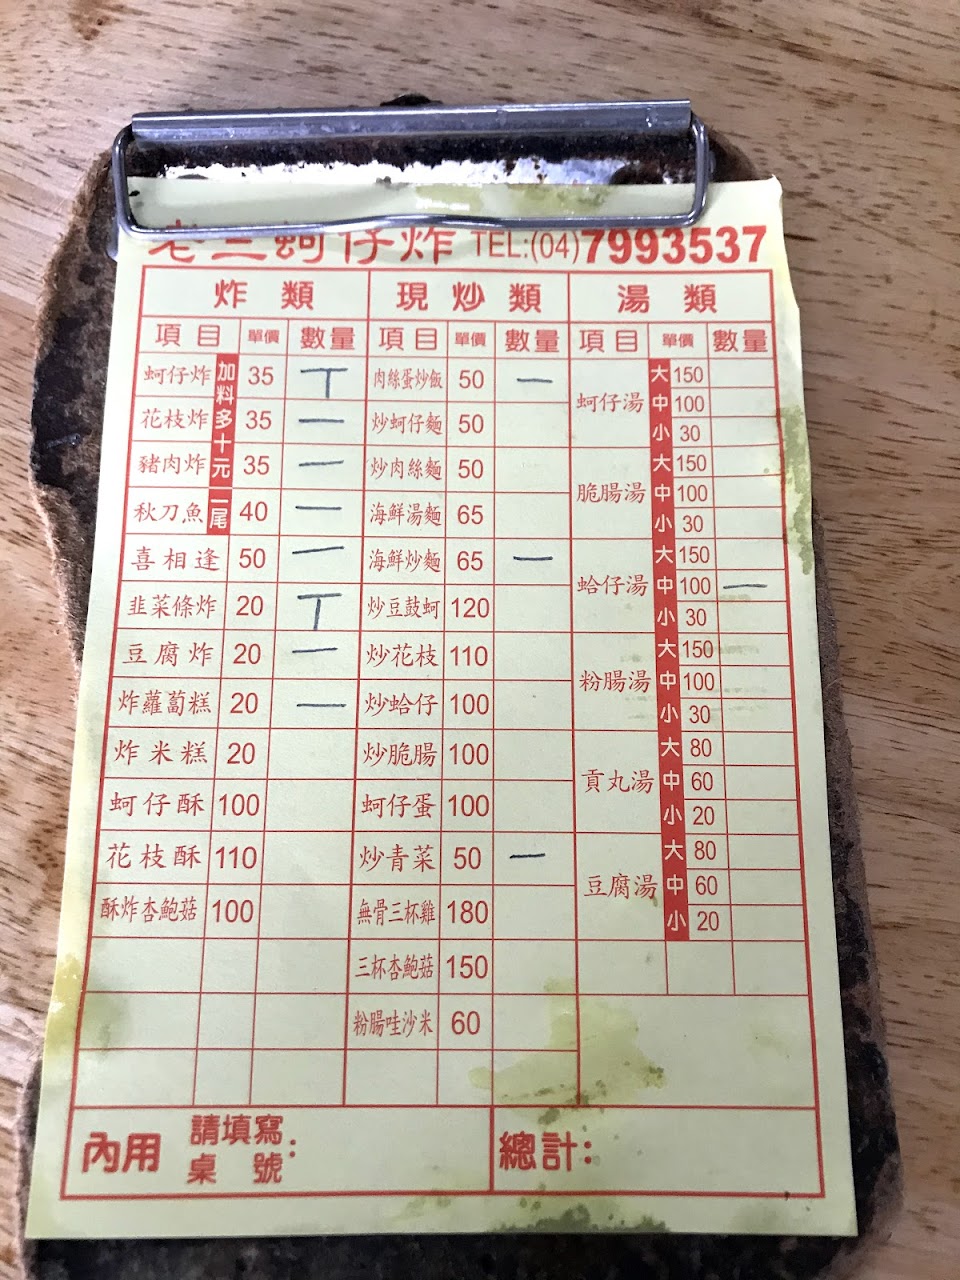 老三蚵仔炸 TEL:(04)7993537
炸類 現炒類 湯類
項目 單價 數量 項目 單價 數量 項目 單價 數量
加料多十元
一尾
蚵仔炸 35 丅
花枝炸 35 一
豬肉炸 35 一
秋刀魚 40 一
喜相逢 50 一
韭菜條炸 20 丅
豆腐炸 20 一
炸蘿蔔糕 20 一
炸米糕 20
蚵仔酥 100
花枝酥 110
酥炸杏鮑菇 100
肉絲蛋炒飯 50 一
炒蚵仔麵 50
炒肉絲麵 50
海鮮湯麵 65
海鮮炒麵 65 一
炒豆鼓蚵 120
炒花枝 110
炒蛤仔 100
炒脆腸 100
蚵仔蛋 100
炒青菜 50 一
無骨三杯雞 180
三杯杏鮑菇 150
粉腸哇沙米 60
蚵仔湯 大 150
中 100
小 30
脆腸湯 大 150
中 100
小 30
蛤仔湯 大 150
中 100 一
小 30
粉腸湯 大 150
中 100
小 30
貢丸湯 大 80
中 60
小 20
豆腐湯 大 80
中 60
小 20
內用 請填寫桌號: 總計: